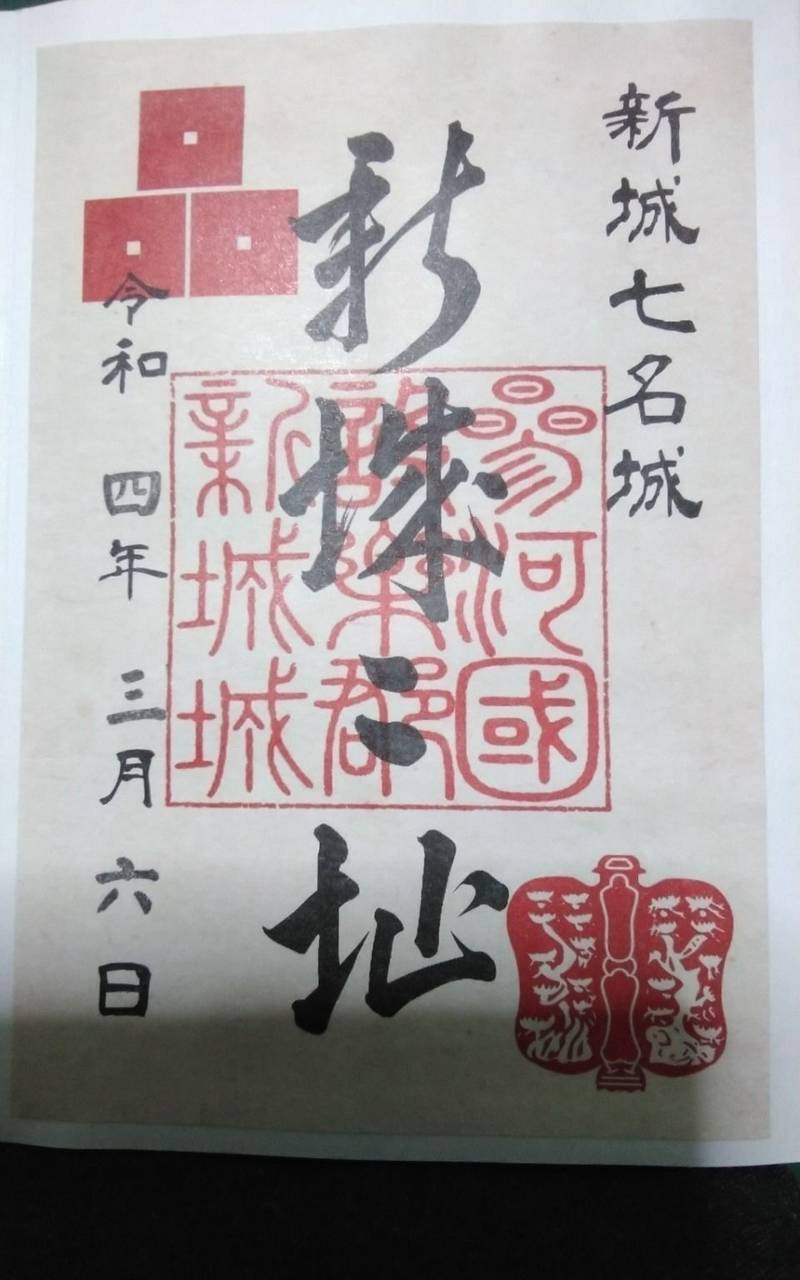 新城七名城
新城〻址
參河國
設樂郡
新城城
令和 四年 三月 六日